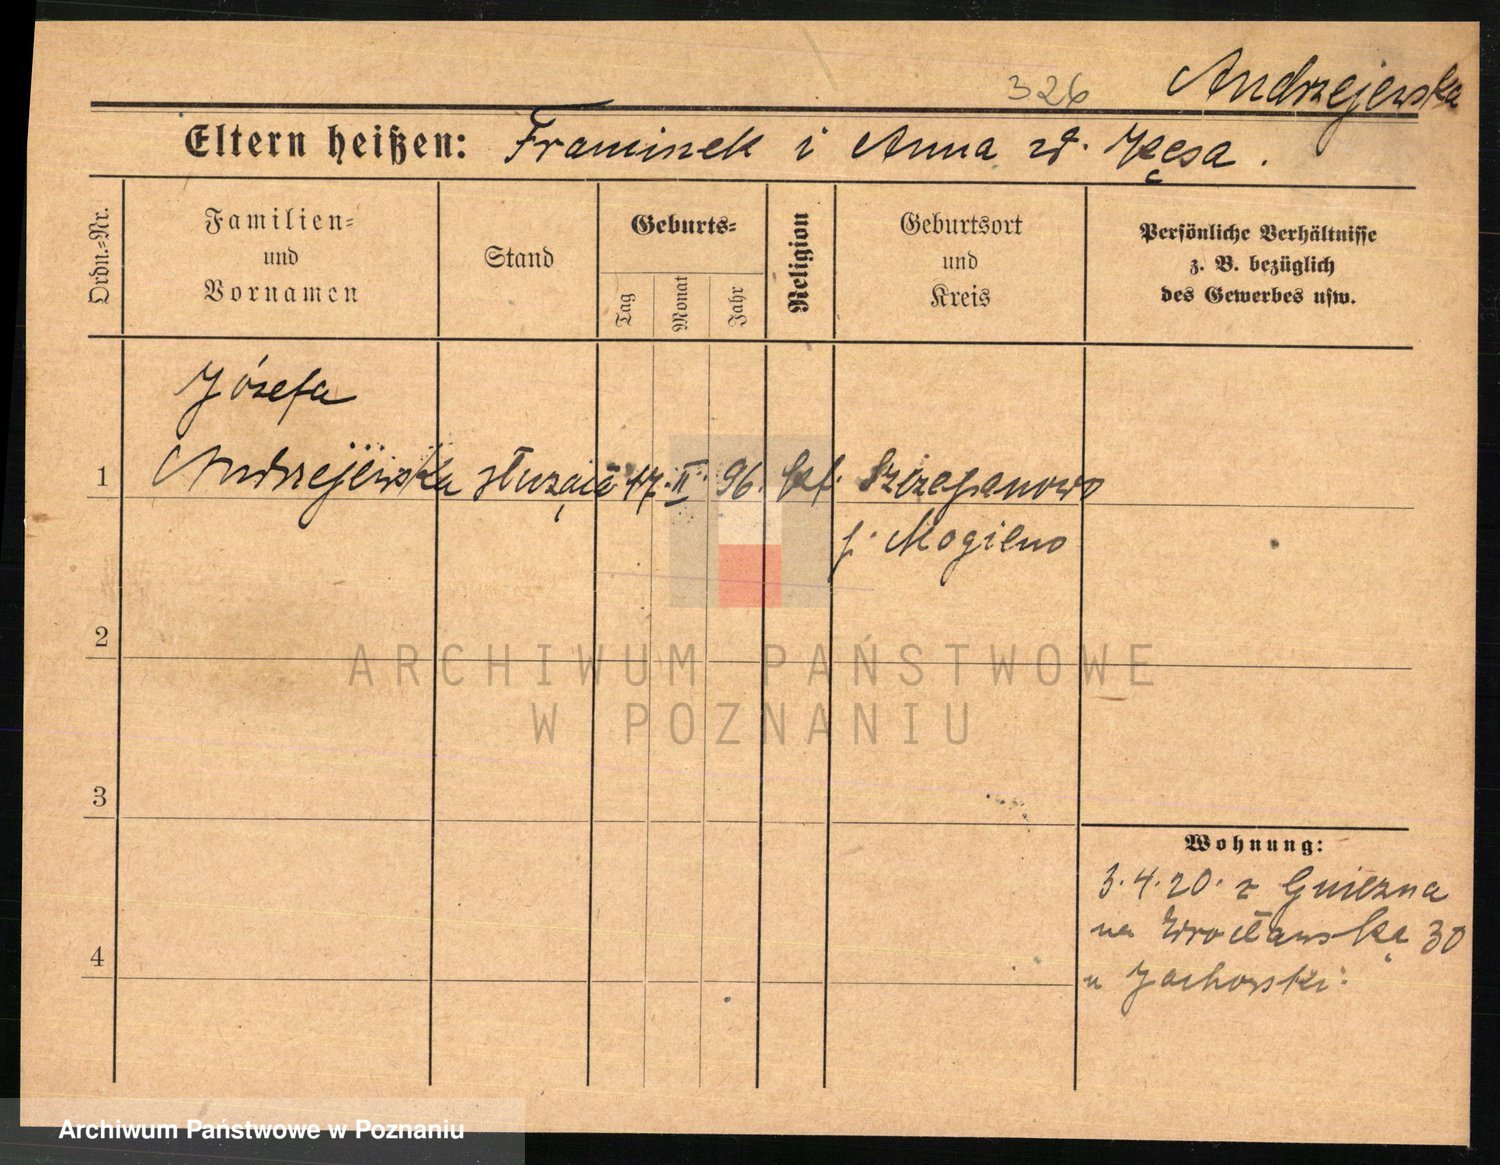 326 Andrzejewska
Eltern heißen: Franciszek i Anna zd. Kęsa.
Ordn.-Nr.
Familien-
und
Vornamen
Stand
Geburts-
Tag
Monat
Jahr
Religion
Geburtsort
und
Kreis
Persönliche Verhältnisse
z. B. bezüglich
des Gewerbes usw.
Józefa
1 Andrzejewska służąca 17. II. 96. kat. Szczepanowo
p. Mogilno
2
3
4
Wohnung:
3.4.20. z Gniezna
na Wrocławską 30
u Jachorski.
ARCHIWUM PAŃSTWOWE
W POZNANIU
Archiwum Państwowe w Poznaniu